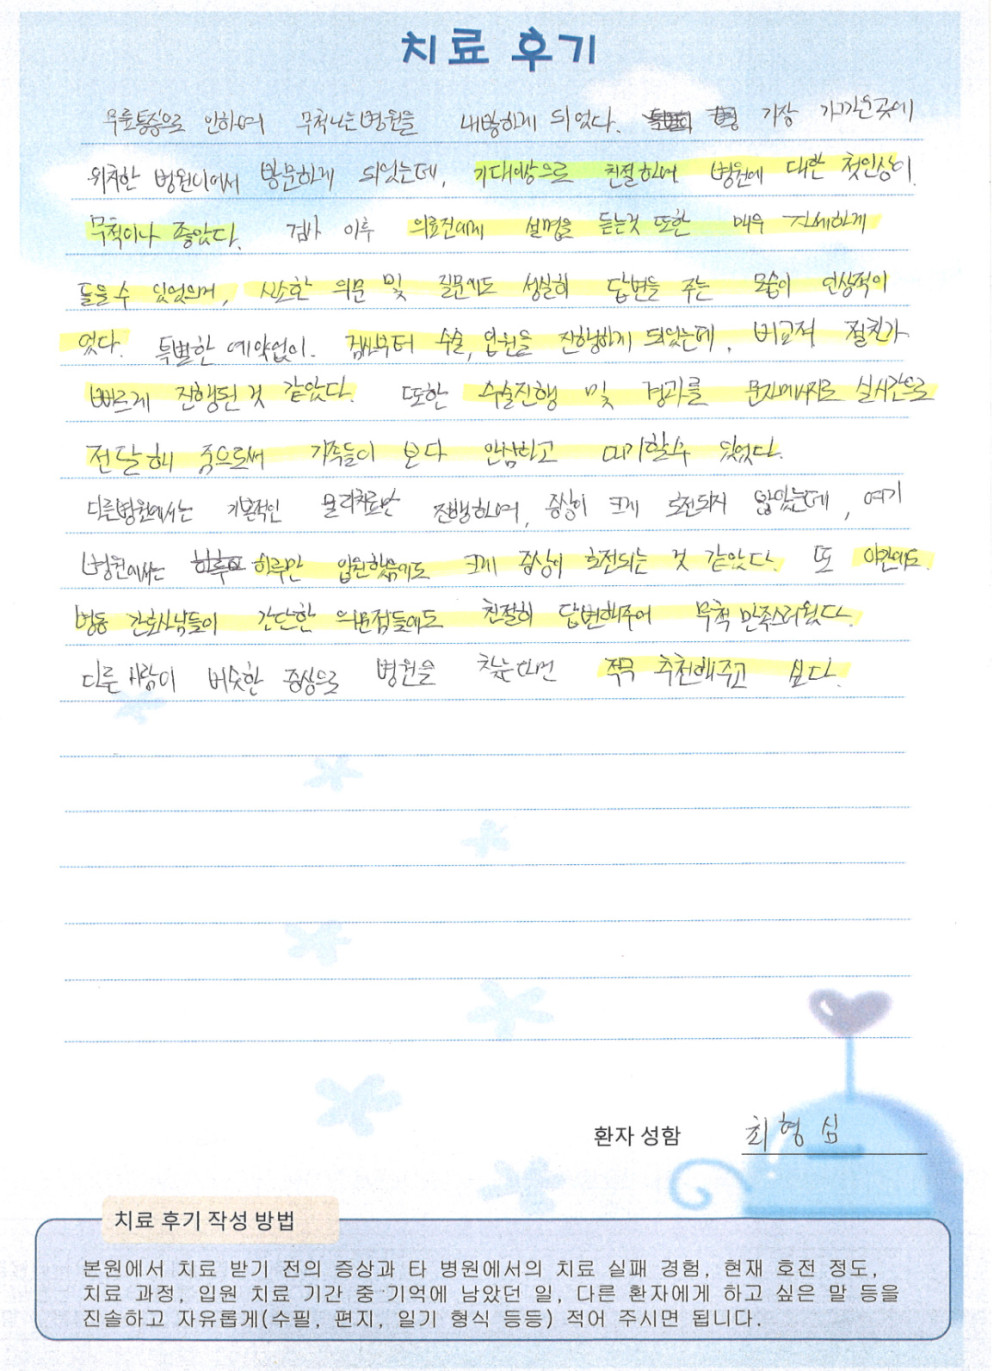 치료 후기
무릎통증으로 인하여 무척나은병원을 내방하게 되었다. 가장 가까운곳에
위치한 병원이어서 방문하게 되었는데, 기대이상으로 친절하여 병원에 대한 첫인상이
무척이나 좋았다. 검사 이후 의료진에게 설명을 듣는것 또한 매우 자세하게
들을수 있었으며, 사소한 의문 및 질문에도 성실히 답변을 주는 모습이 인상적이
었다. 특별한 예약없이. 검사부터 수술, 입원을 진행하게 되었는데, 비교적 절차가
빠르게 진행된 것 같았다. 또한 수술진행 및 경과를 문자메세지로 실시간으로
전달해 줌으로써 가족들이 보다 안심하고 대기할수 있었다.
다른병원에서는 기본적인 물리치료만 진행하여, 증상이 크게 호전되지 않았는데, 여기
병원에서는 하루만 입원했음에도 크게 증상이 호전되는 것 같았다. 또 야간에도
병동 간호사님들이 간단한 의문점들에도 친절히 답변해주어 무척 만족스러웠다.
다른 사람이 비슷한 증상으로 병원을 찾는다면 적극 추천해주고 싶다.
환자 성함 최형심
치료 후기 작성 방법
본원에서 치료 받기 전의 증상과 타 병원에서의 치료 실패 경험, 현재 호전 정도,
치료 과정, 입원 치료 기간 중 기억에 남았던 일, 다른 환자에게 하고 싶은 말 등을
진솔하고 자유롭게(수필, 편지, 일기 형식 등등) 적어 주시면 됩니다.